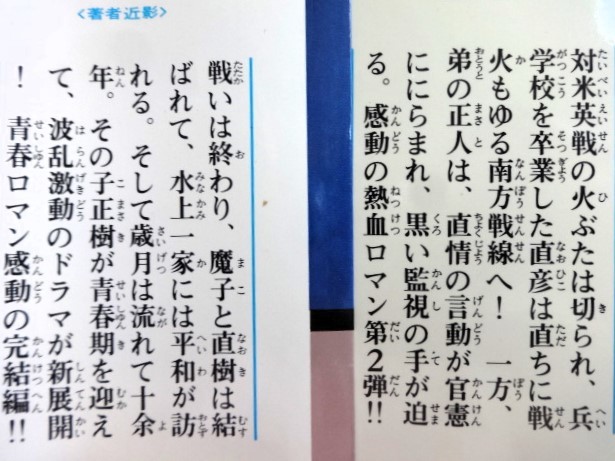 対米英戦の火ぶたは切られ、兵
学校を卒業した直彦は直ちに戦
火もゆる南方戦線へ! 一方、
弟の正人は、直情の言動が官憲
ににらまれ、黒い監視の手が迫
る。感動の熱血ロマン第2弾!!
<著者近影>
戦いは終わり、魔子と直樹は結
ばれて、水上一家には平和が訪
れる。そして歳月は流れて十余
年。その子正樹が青春期を迎え
て、波乱激動のドラマが新展開
! 青春ロマン感動の完結編!!